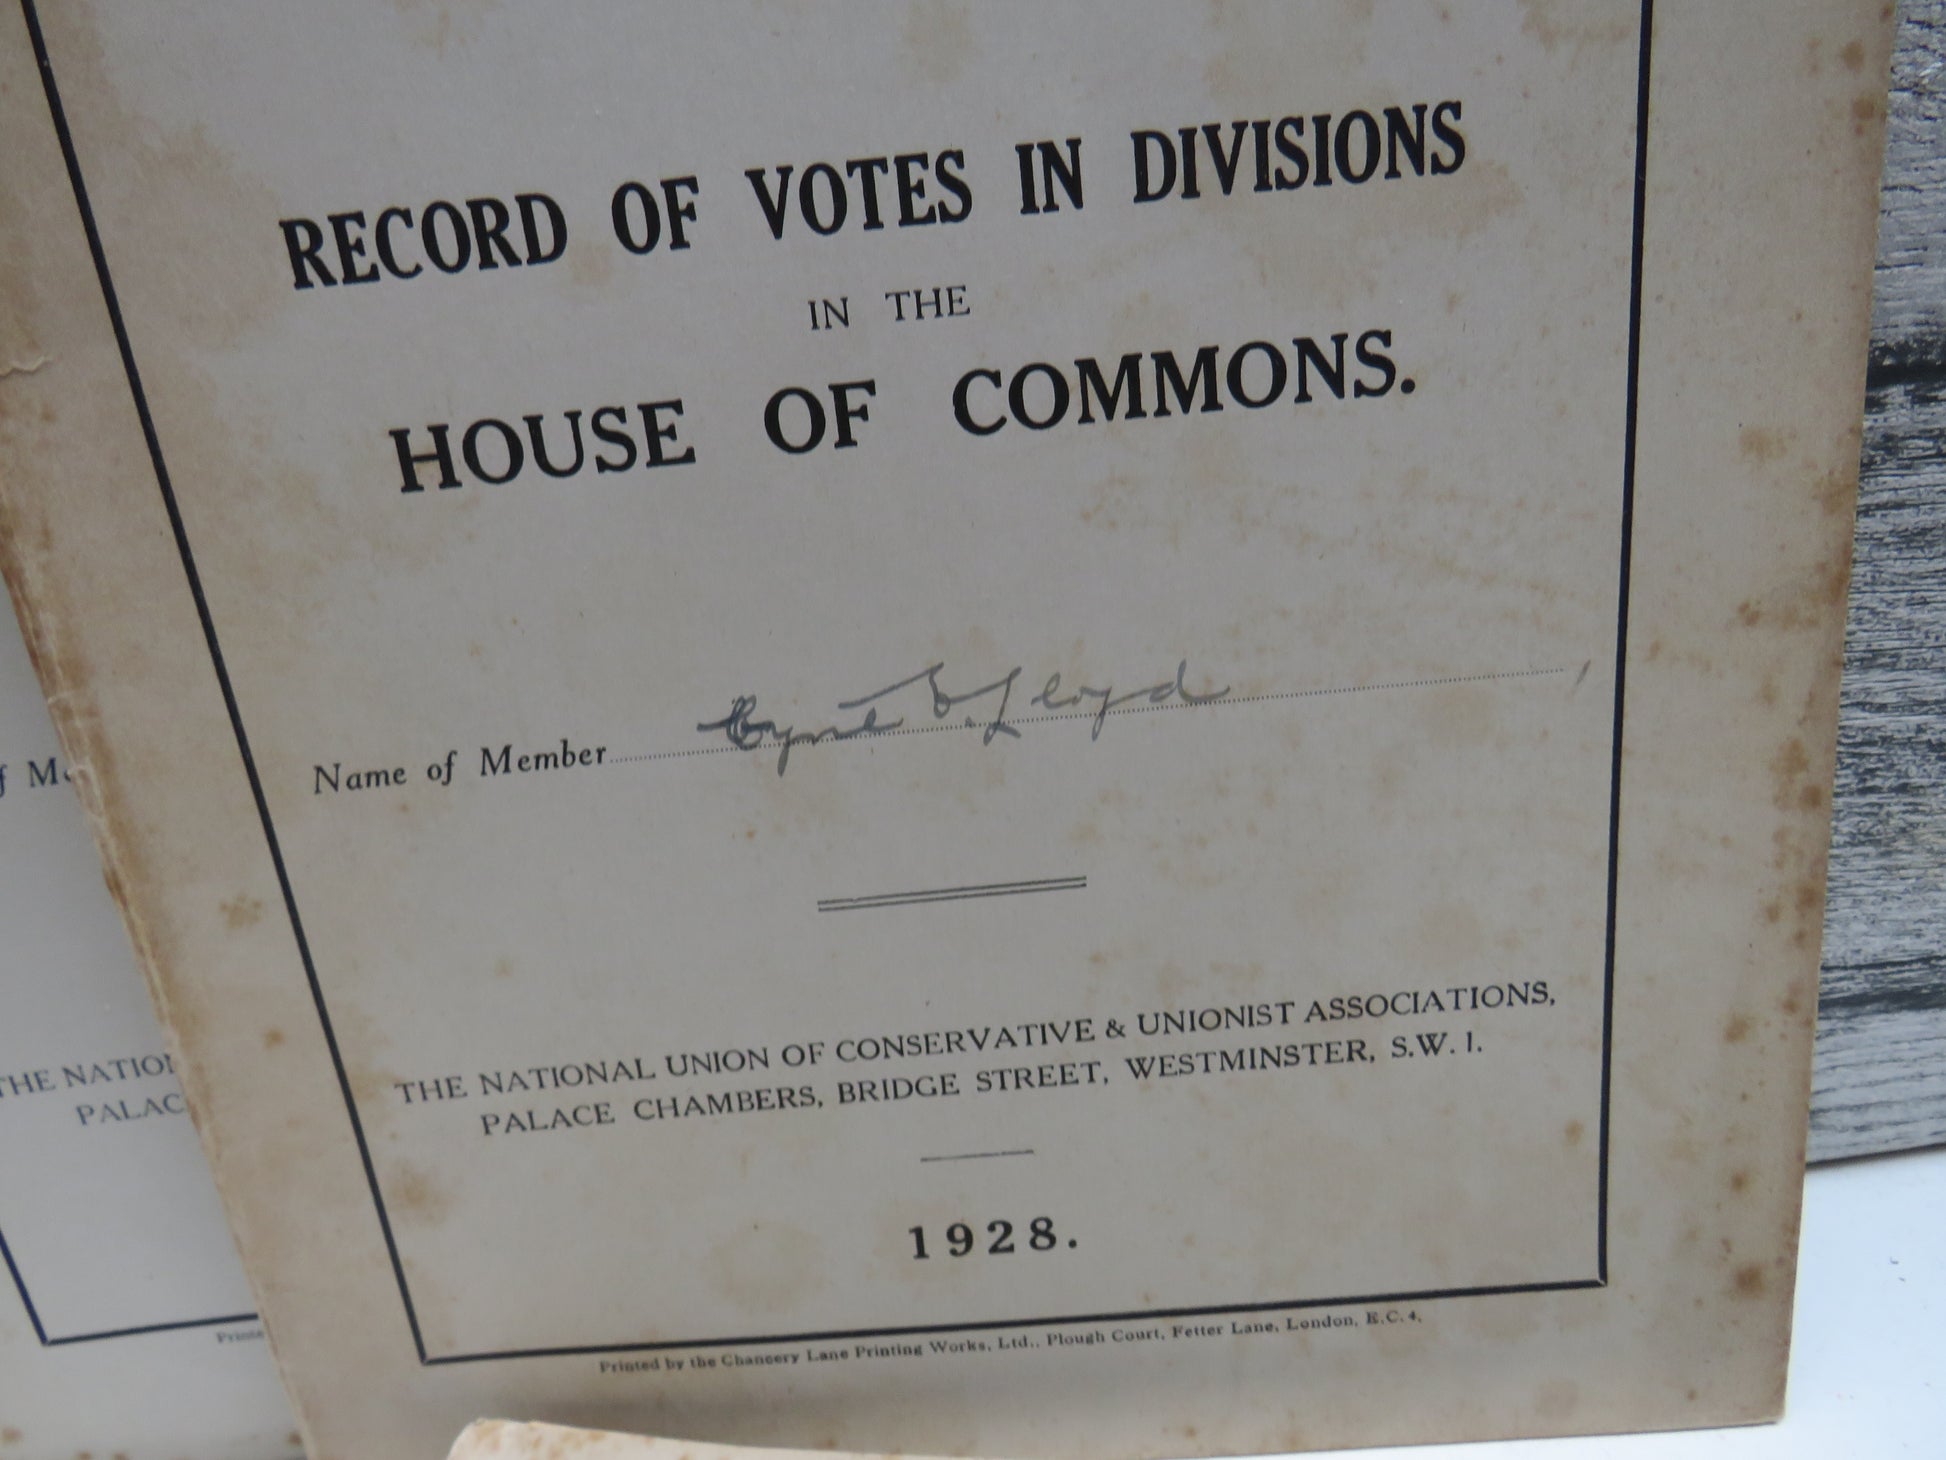 RECORD OF VOTES IN DIVISIONS
IN THE
HOUSE OF COMMONS.
Name of Member Cyril E. Lloyd
THE NATIONAL UNION OF CONSERVATIVE & UNIONIST ASSOCIATIONS,
PALACE CHAMBERS, BRIDGE STREET, WESTMINSTER, S.W. 1.
1928.
Printed by the Chancery Lane Printing Works, Ltd., Plough Court, Fetter Lane, London, E.C. 4.
f M
THE NATION
PALAC
Printe